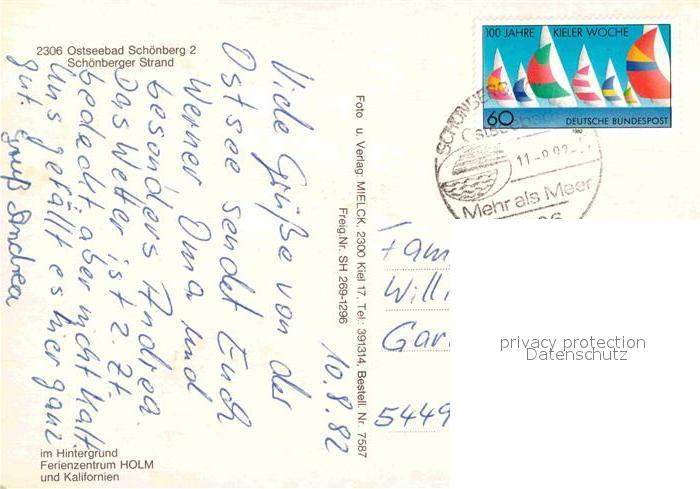 2306 Ostseebad Schönberg 2
Schönberger Strand
10.8.82
Viele Grüße von der
Ostsee sendet Euch
Werner Oma und
besonders Andrea
Das Wetter ist z. Zt.
bedeckt aber nicht kalt.
Uns gefällt es hier ganz
gut. Gruß Andrea
im Hintergrund
Ferienzentrum HOLM
und Kalifornien
Foto u. Verlag: MIELCK, 2300 Kiel 17, Tel.: 391314, Bestell. Nr. 7587
Freig.Nr. SH 269-1296
100 JAHRE KIELER WOCHE
60 DEUTSCHE BUNDESPOST
1982
SCHÖNBERG
Ostseebad
Mehr als Meer
Fam
Willi
Gar
5449
privacy protection
Datenschutz